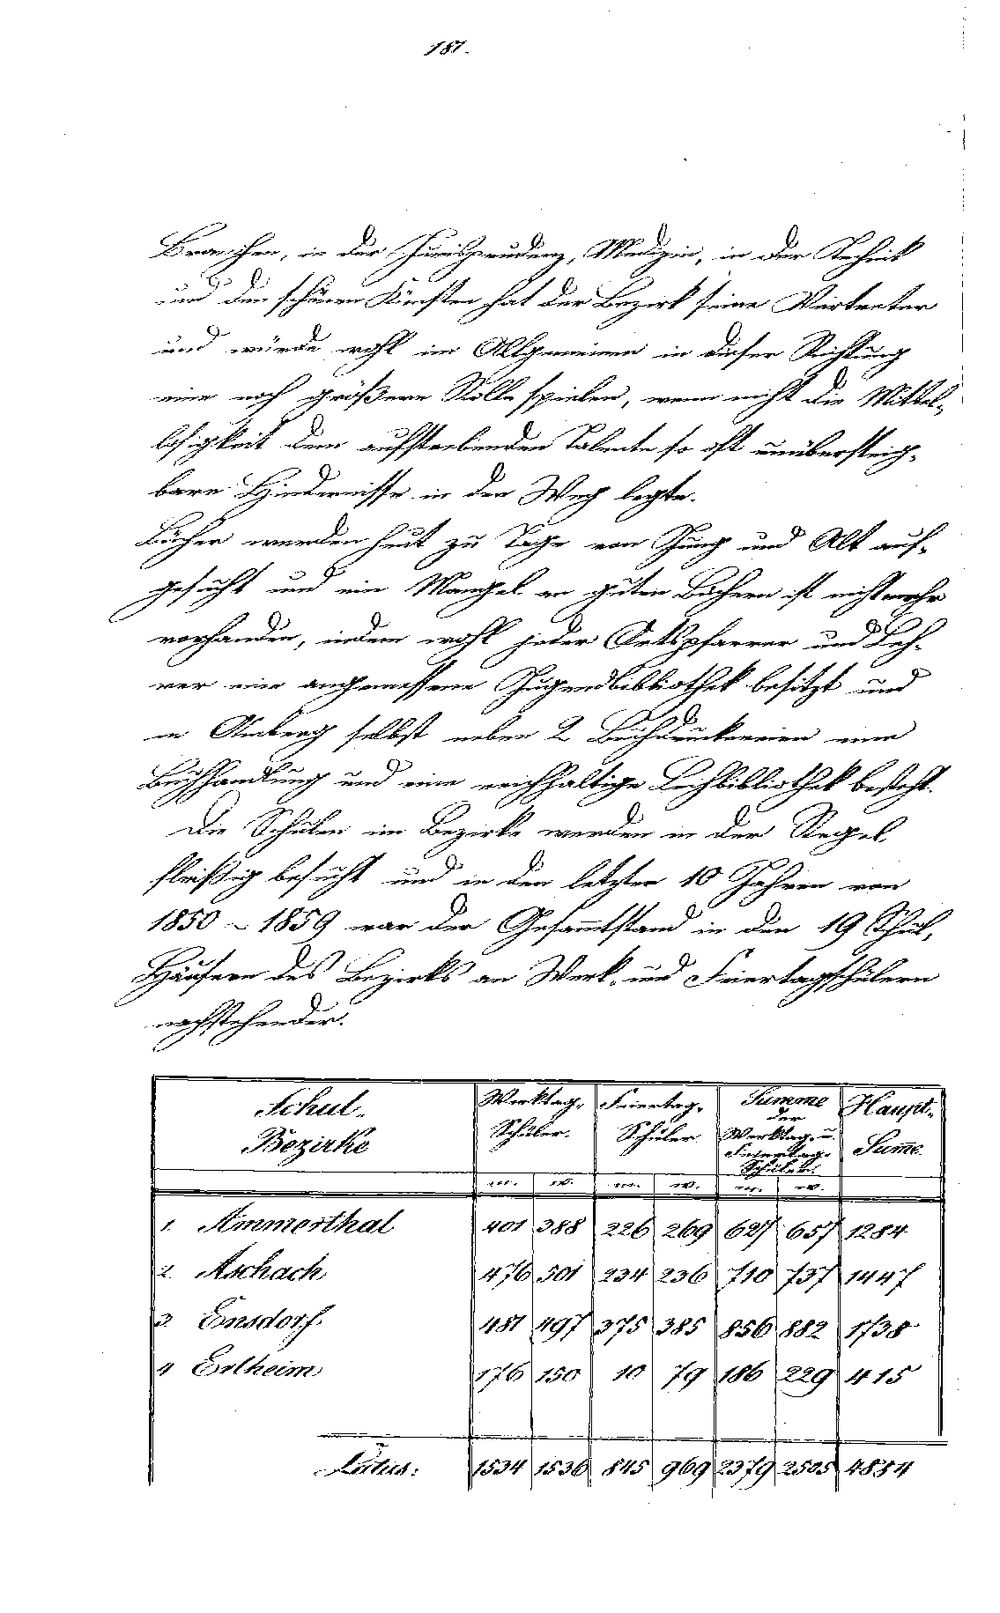 187.
Branchen, in der Jurisprudenz, Medizin, in der Technik
und den schönen Künsten hat der Bezirk seine Vertreter
und würde wohl im Allgemeinen in dieser Richtung
eine noch größere Rolle spielen, wenn nicht die Mittel-
losigkeit dem aufstrebenden Talente so oft unübersteig-
bare Hindernisse in den Weg legte.
Bücher werden heut zu Tage von Jung und Alt auf-
gesucht und ein Mangel an guten Büchern ist nicht mehr
vorhanden, indem wohl jeder Ortspfarrer und Leh-
rer eine angemessene Jugendbibliothek besitzt und
in Amberg selbst neben 2 Buchdruckereien eine
Buchhandlung und eine reichhaltige Leihbibliothek besteht.
Die Schulen im Bezirke werden in der Regel
fleißig besucht und in den letzten 10 Jahren von
1850 – 1859 war der Gesammtstand in den 19 Schul-
Häusern des Bezirks an Werk- und Feiertagschülern
nachstehender.
Schul- Werktag- Feiertag- Summe Haupt-
Bezirke Schüler. Schüler. der Werktag- u. Feiertag- Schüler. Summe.
m. w. m. w. m. w.
1. Ammerthal 401 388 226 269 627 657 1284
2. Aschach 476 501 234 236 710 737 1447
3. Ensdorf 481 497 375 385 856 882 1738
4 Erlheim 176 150 10 79 186 229 415
Latus: 1534 1536 845 969 2379 2505 4884